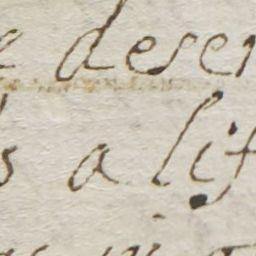 e deser
s a lif